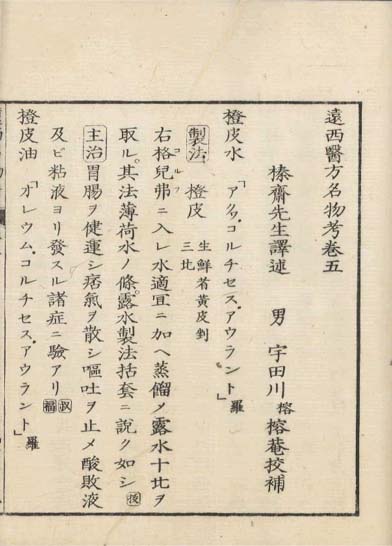 遠西醫方名物考卷五
榛齋先生譯述 男 宇田川 榕 榕菴挍補
橙皮水 「アクワ、コルチセス、アウラント」羅
製法 橙皮 生鮮者黄皮剉 三比
右格兒弗コルフニ入レ水適宜ニ加ヘ蒸餾メ露水十比ヲ
取ル。其法薄荷水ノ條。露水製法括套ニ說ク如シ 後
主治 胃腸ヲ健運シ痞氣ヲ散シ嘔吐ヲ止メ酸敗液
及ビ粘液ヨリ發スル諸症ニ驗アリ 扶 福
橙皮油 「オレウム、コルチセス、アウラント」羅